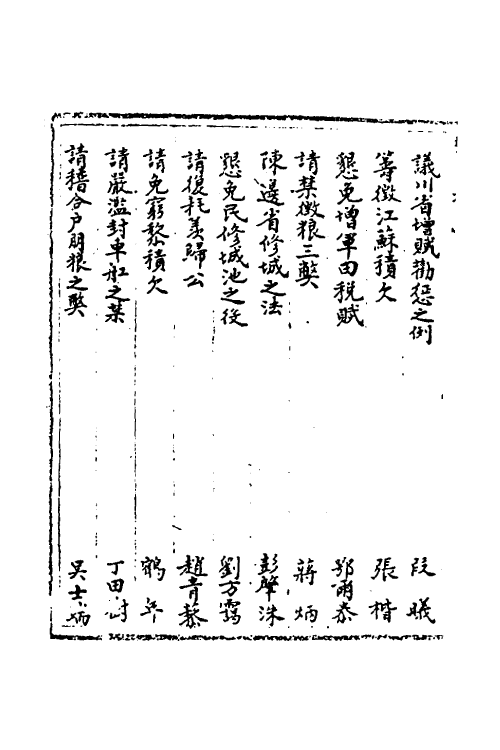 議川省增賦勸惩之例 段曦
籌徵江蘇積欠 張楷
懇免增軍田稅賦 鄂爾泰
請禁徵粮三弊 蔣炳
陳邊省修城之法 彭肇洙
懇免民修城池之役 劉方靄
請復耗羡歸公 趙青藜
請免窮黎積欠 鶴年
請嚴濫封車舡之禁 丁田澍
請稽合戶朋粮之弊 吳士功